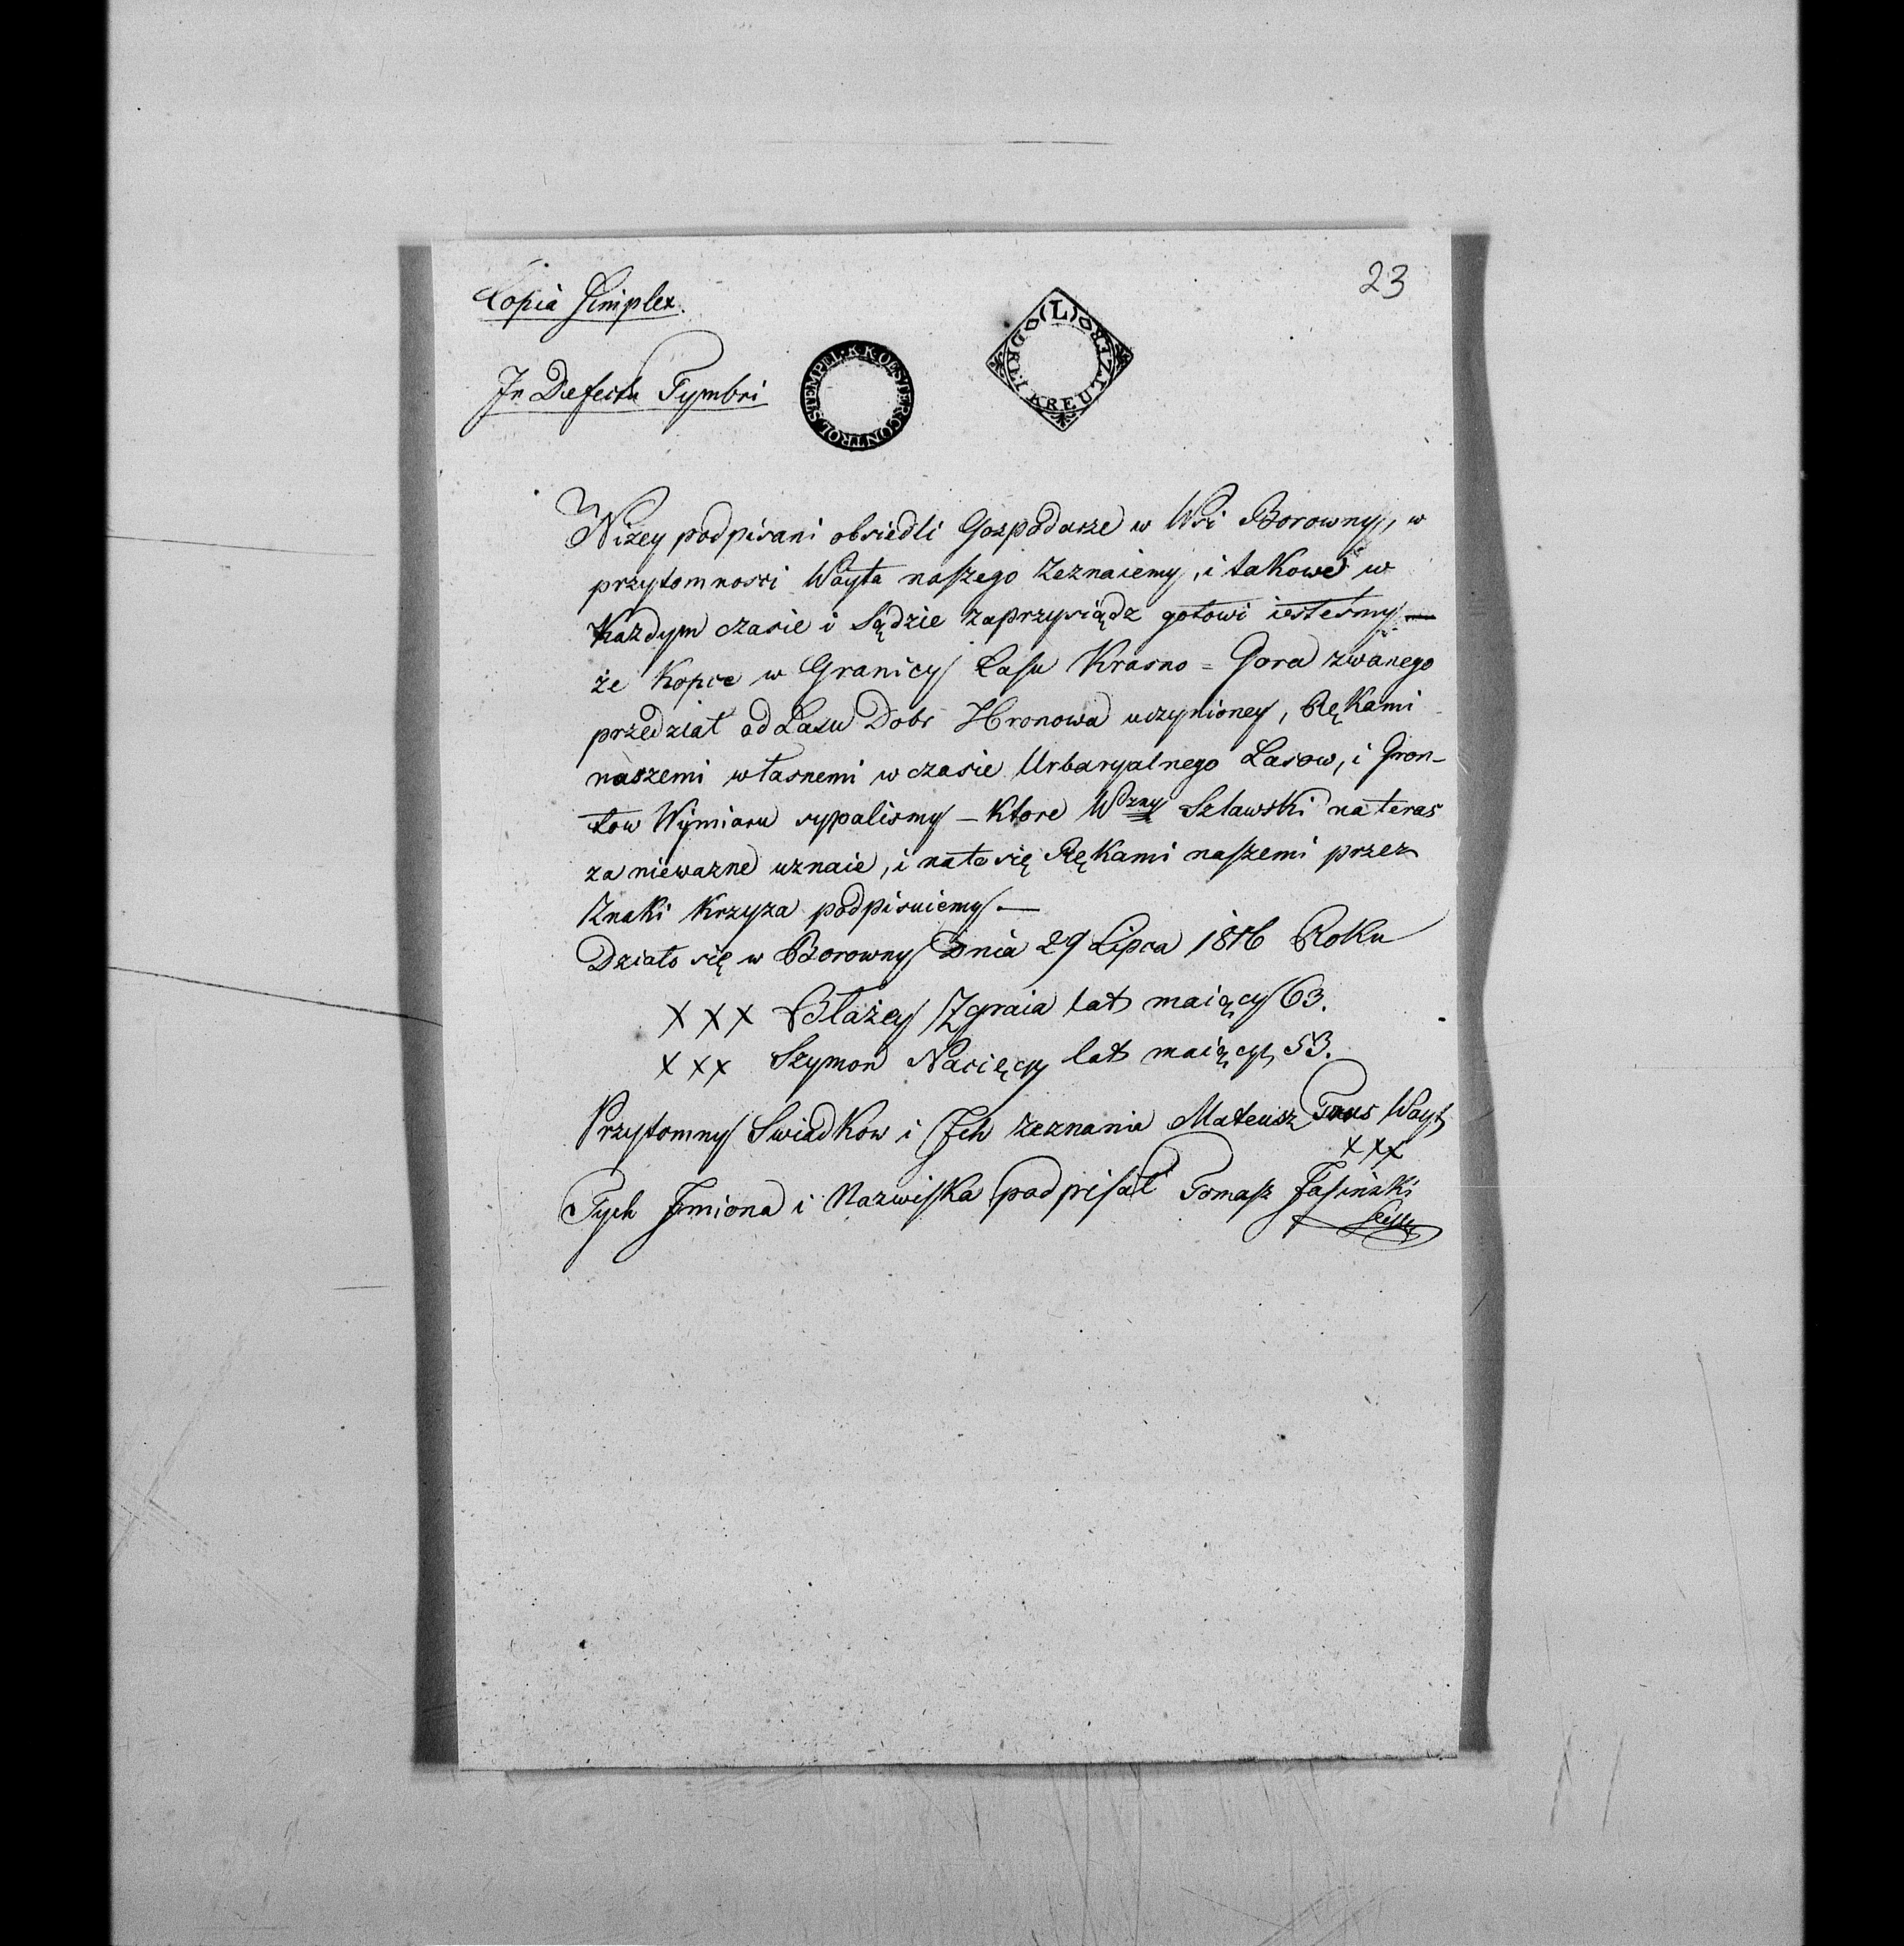 23
Copia Simplex.
In Defectu Tymbri
STEMPEL · K K OESTER CONTROL
(L) DREI KREUTZER
Niżey podpisani obsiedli Gospodarze w Wsi Borowny, w
przytomnosci Wayta naszego zeznaiemy, i takowe w
Każdym czasie i Sądzie zaprzysiądz gotowi iestesmy —
że Kopce w Granicy Lasu Krasno = Gora zwanego
przedział od Lasu Dobr Hronowa uczynioney, Rękami
naszemi własnemi w czasie Urbaryalnego Lasow, i Gron-
tow Wymiaru sypalismy — Ktore Wzny Szławski na teras
za niewazne uznaie, i nato się Rękami naszemi przez
Znaki Krzyza podpisuiemy. —
Działo się w Borowny Dnia 29 Lipca 1816 Roku
X X X Błażey Zgraia lat maiący 63.
X X X Szymon Nacięcy lat maiący 53.
Przytomny Swiadkow i Ich zeznania Mateusz Wayt
X X X
Tych Imiona i Nazwiska podpisał Tomasz Jasinski